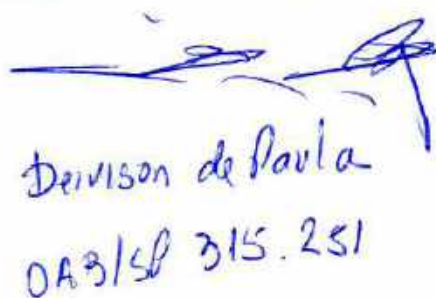 Deivison de Paula
OAB/SP 315.251